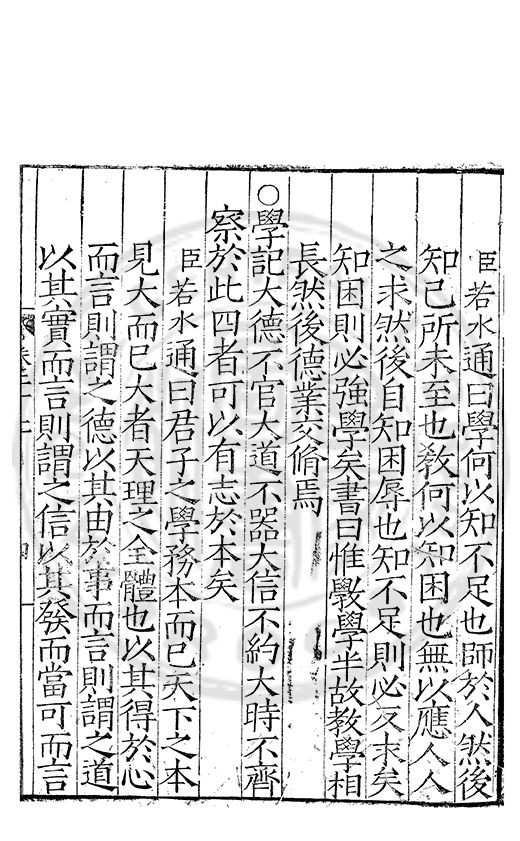 臣若水通曰學何以知不足也師於人然後
知己所未至也教何以知困也無以應人人
之求然後自知困辱也知不足則必反求矣
知困則必強學矣書曰惟斆學半故教學相
長然後德業交脩焉
○學記大德不官大道不器大信不約大時不齊
察於此四者可以有志於本矣
臣若水通曰君子之學務本而已天下之本
見大而已大者天理之全體也以其得於心
而言則謂之德以其由於事而言則謂之道
以其實而言則謂之信以其發而當可而言